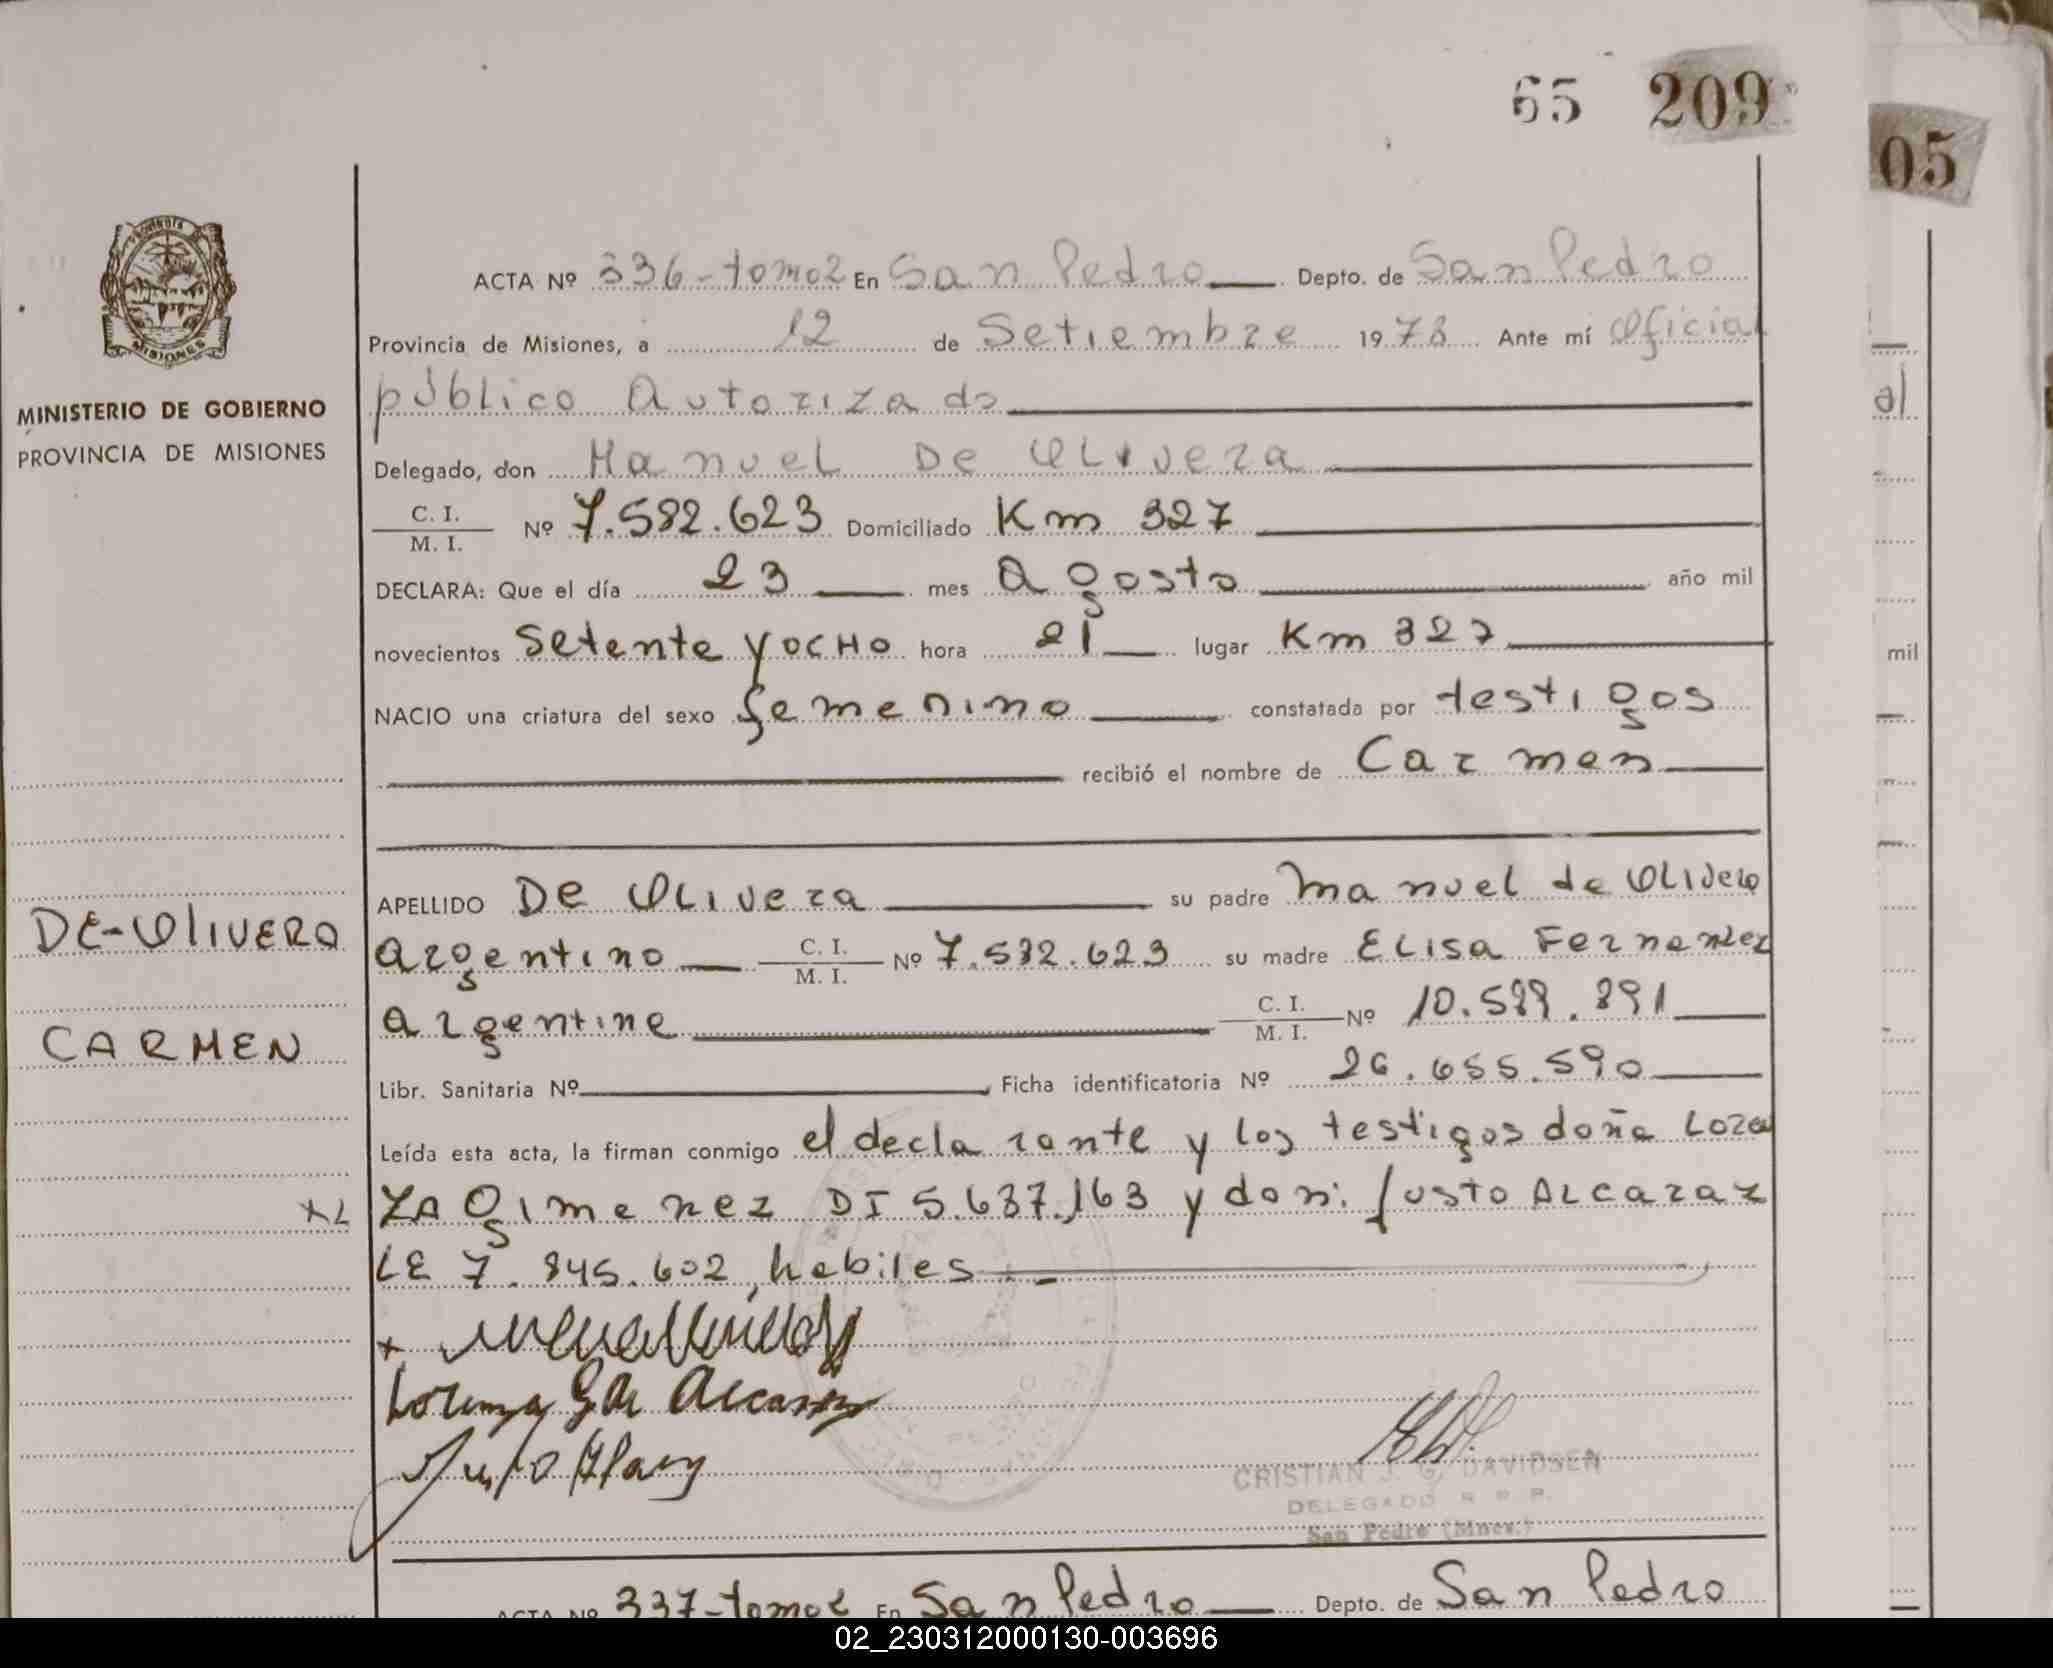 65 209
05
ACTA Nº 336-tomo2 En San Pedro Depto. de San Pedro
Provincia de Misiones, a 12 de Setiembre 1978 Ante mí Oficial
público Autorizado
Delegado, don Manuel De Olivera
C. I.
M. I. Nº 7.582.623 Domiciliado Km 327
DECLARA: Que el día 23 mes Agosto año mil
novecientos Setente y OCHO hora 21 lugar Km 327
NACIO una criatura del sexo femenino constatada por testigos
recibió el nombre de Carmen
APELLIDO De Olivera su padre Manuel de Olivera
argentino C. I.
M. I. Nº 7.582.623 su madre ELisa Fernandez
argentine C. I.
M. I. Nº 10.589.891
Libr. Sanitaria Nº Ficha identificatoria Nº 26.655.590
Leída esta acta, la firman conmigo el declarante y los testigos doña Lore
ZA Gimenez DI 5.637.163 y don: Justo ALcaraz
LE 7.845.602, habiles
Justo
CRISTIAN J. G. DAVIDSEN
DELEGADO R. P. P.
San Pedro (Mnes.)
ACTA Nº 337-tomo2 En San Pedro Depto. de San Pedro
PROVINCIA DE
MISIONES
MINISTERIO DE GOBIERNO
PROVINCIA DE MISIONES
DE-OlIVERA
CARMEN
al
mil
02_230312000130-003696